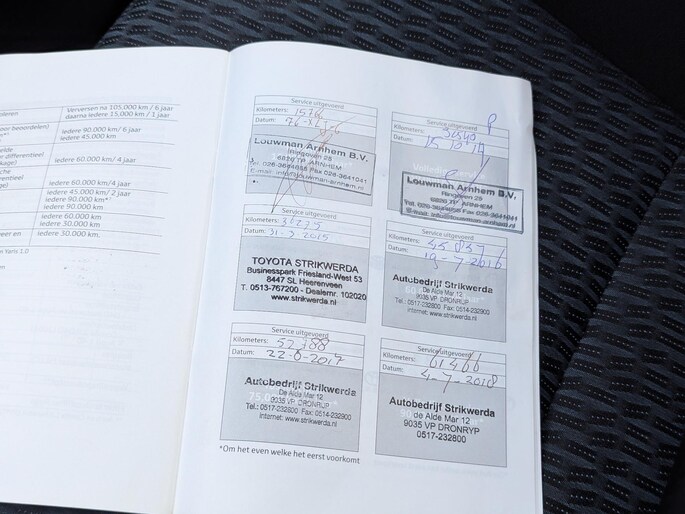 Verversen na 105.000 km / 6 jaar
daarna iedere 15.000 km / 1 jaar
iedere 90.000 km/ 6 jaar
iedere 45.000 km
iedere 60.000 km/4 jaar
iedere 60.000 km/4 jaar
iedere 45.000 km/ 2 jaar
iedere 90.000 km*
iedere 90.000 km
iedere 60.000 km
iedere 30.000 km
iedere 30.000 km.
Yaris 1.0
Service uitgevoerd
Kilometers:
Datum:
Louwman Arnhem B.V.
Ringoven 25
6826 TP ARNHEM
E-mail: info@louwman-arnhem.nl
Service uitgevoerd
Kilometers:
Datum: 15
Louwman Arnhem B.V.
Ringoven 25
6826 TP ARNHEM
Tel. 026-3684888 Fax 026-3641041
E-mail: info@louwman-arnhem.nl
Service uitgevoerd
Kilometers:
Datum: 31-3-2015
TOYOTA STRIKWERDA
Businesspark Friesland-West 53
8447 SL Heerenveen
T. 0513-767200 - Dealernr. 102020
www.strikwerda.nl
Service uitgevoerd
Kilometers: 45837
Datum: 19-7-2016
Autobedrijf Strikwerda
De Alde Mar 12
9035 VP DRONRIJP
Tel.: 0517-232800 Fax: 0514-232900
Internet: www.strikwerda.nl
Service uitgevoerd
Kilometers: 52788
Datum: 22-6-2017
Autobedrijf Strikwerda
De Alde Mar 12
9035 VP DRONRIJP
Tel.: 0517-232800 Fax: 0514-232900
Internet: www.strikwerda.nl
Service uitgevoerd
Kilometers: 61466
Datum: 4-7-2018
Autobedrijf Strikwerda
de Alde Mar 12
9035 VP DRONRYP
0517-232800
*Om het even welke het eerst voorkomt